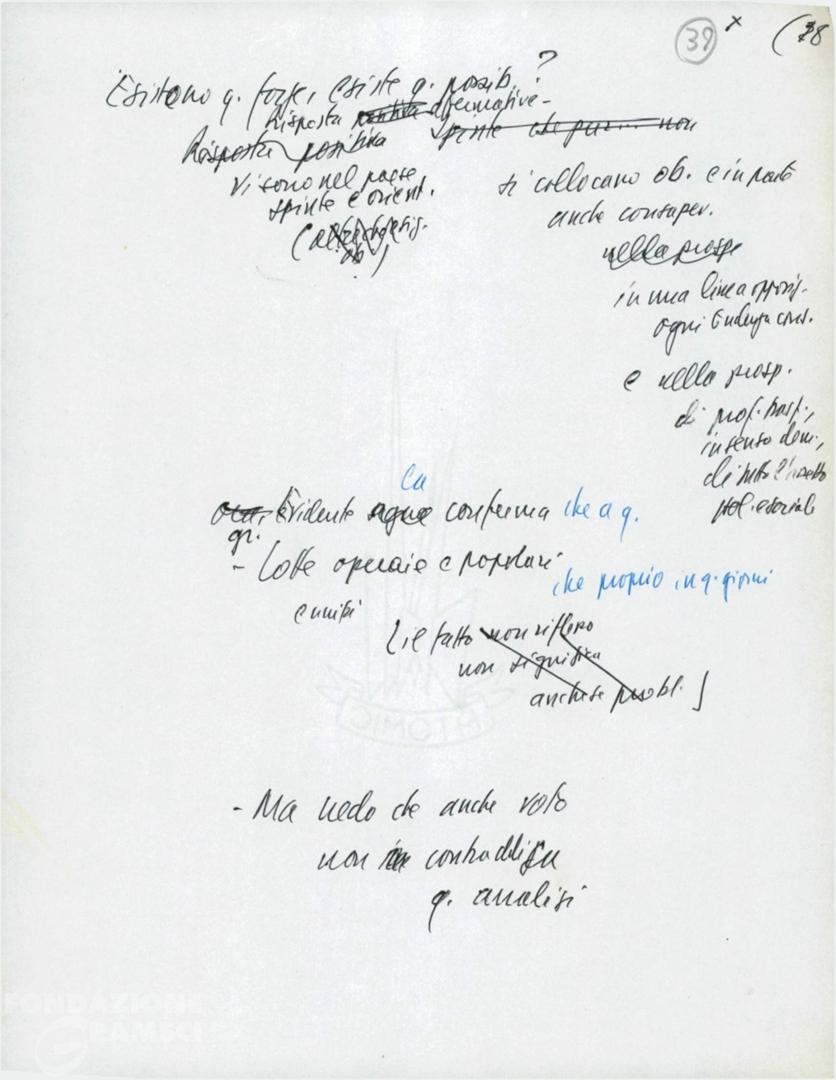 39 x (38
Esistono q. forze, esiste q. possib.?
Risposta affermative-
Risposta positiva
spinte che non
Vi sono nel paese
spinte e orient.
si collocano ob. e in parte
anche consapev.
nella prosp
in una linea opposiz.
ogni tendenza cons.
e nella prosp.
di prof. trasf.,
in senso dem.,
di tutto l'assetto
pol. e sociale
La
Evidente conferma che a q.
gr.
- Lotte operaie e popolari
che proprio in q. giorni
e uniti
[il fatto non riflesso
non significa
anche se probl.]
- Ma vedo che anche voto
non contraddice
q. analisi
FONDAZIONE
GRAMSCI
ATOMIC